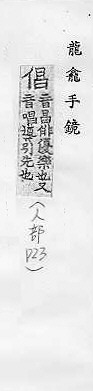 龍龕手鏡
倡
音昌俳優樂也又
音唱導引先也
(人部
P23)